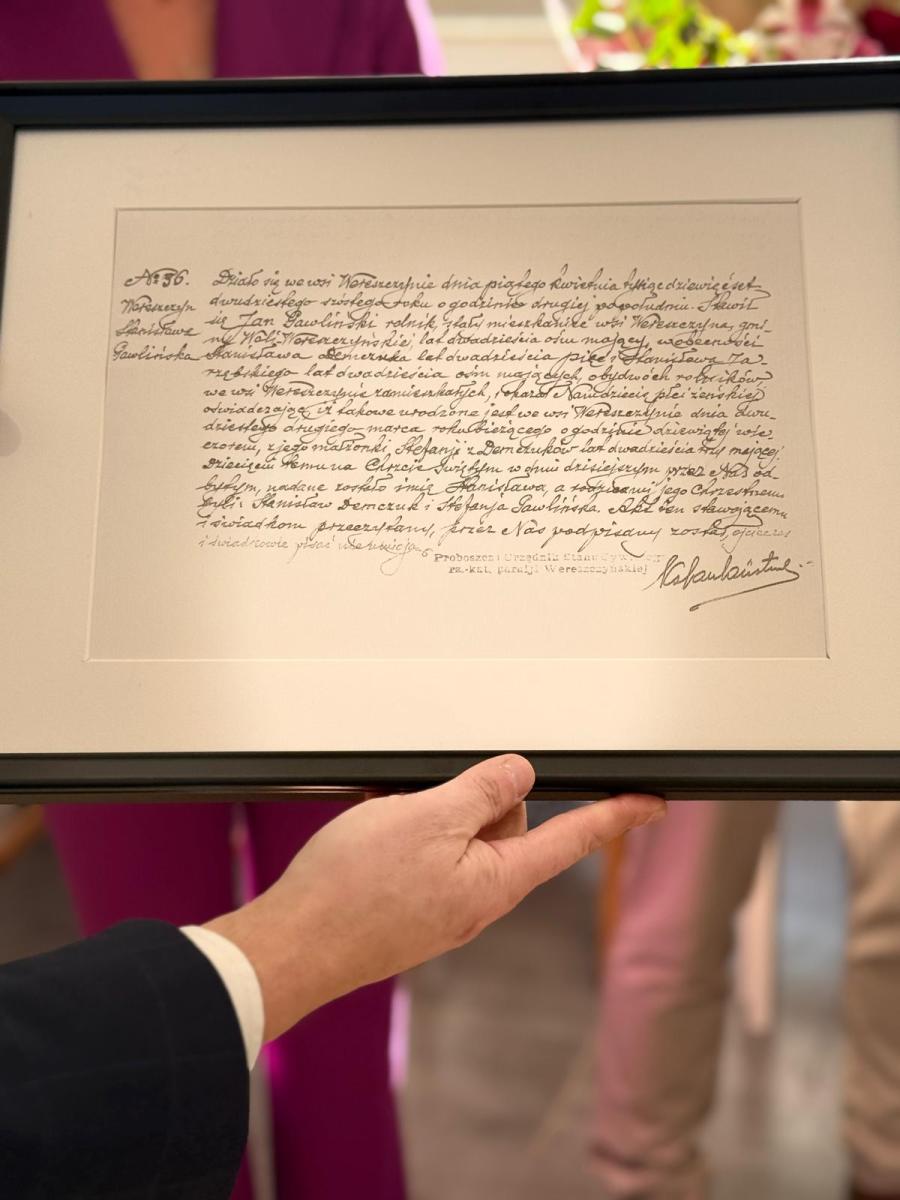 № 36.
Wereszczyn
Stanisława
Gawlińska
Działo się we wsi Wereszczynie dnia piątego kwietnia tysiąc dziewięćset
dwudziestego szóstego roku o godzinie drugiej popołudniu. Stawił
się Jan Gawliński rolnik, stały mieszkaniec wsi Wereszczyna, gmi-
ny Woli-Wereszczyńskiej, lat dwadzieścia ośm mający, w obecności
Stanisława Demczuka lat dwadzieścia pięć i Stanisława Za-
rzębskiego lat dwadzieścia ośm mających, obydwóch rolników,
we wsi Wereszczynie zamieszkałych, i okazał Nam dziecię płci żeńskiej
oświadczając, iż takowe urodzone jest we wsi Wereszczynie dnia dwu-
dziestego drugiego marca roku bieżącego o godzinie dziewiątej wie-
czorem, z jego małżonki Stefanji z Demczuków lat dwadzieścia trzy mającej.
Dziecięciu temu na Chrzcie Świętym w dniu dzisiejszym przez Nas od-
bytym, nadane zostało imię Stanisława, a rodzicami jego Chrzestnemi
byli: Stanisław Demczuk i Stefanja Gawlińska. Akt ten stawającemu
i świadkom przeczytany, przez Nas podpisany został, ojciec zaś
i świadkowie pisać nie umieją.
Proboszcz i Urzędnik Stanu Cywilnego
rz.-kat. parafji Wereszczyńskiej